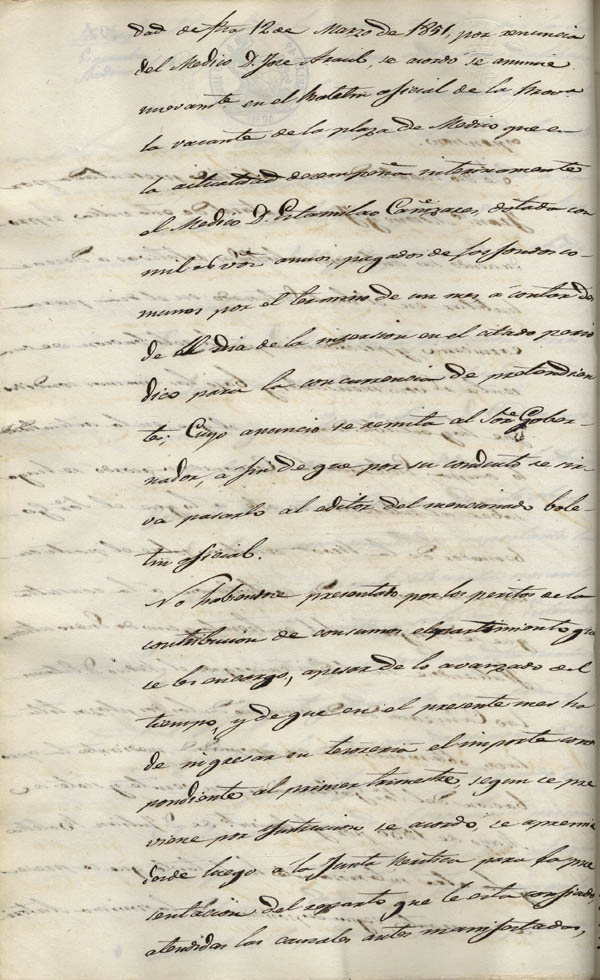 dad de fha 12 de Marzo de 1851, por renuncia
del Medico D. Jose Araul, se acordó se anuncie
nuevamte en el Boletin oficial de la Prova
la vacante de la plaza de Medico que en
la actualidad desempeña interinamente
el Medico D. Estanislao Cañizares, dotada con
mil rs von anuos, pagados de los fondos co-
munes por el termino de un mes, á contar des
de el dia de la insercion en el citado perio
dico para la concurrencia de pretendien
te; Cuyo anuncio se remita al Sor Gober-
nador, a fin de que por su conducto se sir-
va pasarlo al editor del mencionado bole-
tin oficial.
No habiendose presentado por los peritos de la
contribucion de consumos el repartimiento que
se les encargo, apesar de lo avanzado del
tiempo, y de que en el presente mes ha
de ingresar en tesoreria el importe corres
pondiente al primer trimestre, segun se pre
viene por Instruccion, se acordó, se apremie
desde luego a la Junta Peritica para la pre
sentacion del reparto que le esta confiado,
atendidas las causales antes manifestadas,